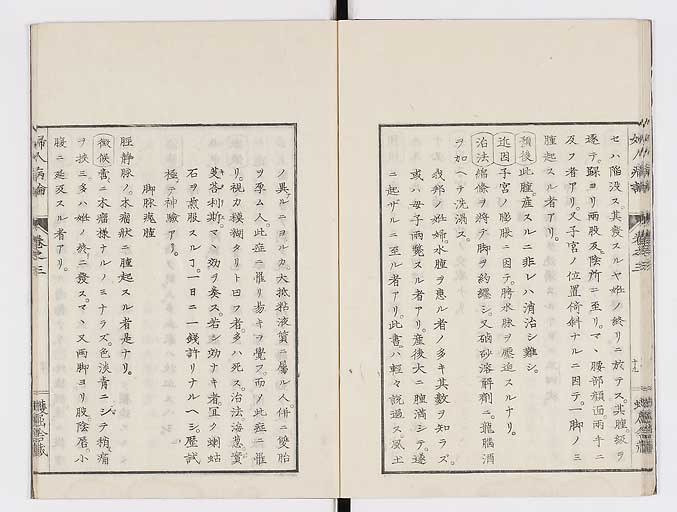 セハ陥没ス。其発スルヤ妊ノ終リニ於テス。其腫級ヲ
逐テ。蹠ヨリ両股及陰所ニ至リ。マヽ腰部顔面両手ニ
及フ者アリ。又子宮ノ位置倚斜ナルニ因テ。一脚ノミ
腫起スル者アリ。
預後此腫。産スルニ非レハ消治シ難シ。
近因子宮ノ膨脹ニ因テ。胯水脉ヲ壓迫スルナリ。
治法綿絛ヲ将テ脚ヲ約纒シ。又硇砂溶解劑ニ。龍脳消
ヲ加ヘテ洗滌ス。
我邦ノ妊婦。水腫ヲ患ル者ノ多キ其数ヲ知ラズ。
或ハ母子両斃スル者アリ。産後大ニ腹満シテ。遂
ニ起サルニ至ル者アリ。此書ハ軽々説過ス。風土
ノ異ルニヨルカ。大抵粘液質ニ属ル人。併ニ雙胎
ヲ孕ム人。此症ニ罹リ易キヲ覺フ。而ノ此症ニ罹
リ。視力模糊タリト曰フ者。多ハ死ス。治法海葱實
芰荅利斯。マヽ効ヲ奏ス。若シ効ナキ者。宜ク蝲蛄
石ヲ煎服スル丁。一日ニ一銭許リナルヘシ。歴試
極テ神驗アリ。
脚脉瘤腫
脛静脉ノ。木瘤状ニ腫起スル者是ナリ。
徴候啻ニ木瘤様ナルノミナラズ。色淡青ニシテ稍痛
ヲ挾ミ。多ハ妊ノ終ニ發ス。マヽ又両脚ヨリ股陰唇。小
腹ニ延及スル者アリ。
婦人病論
卷之三